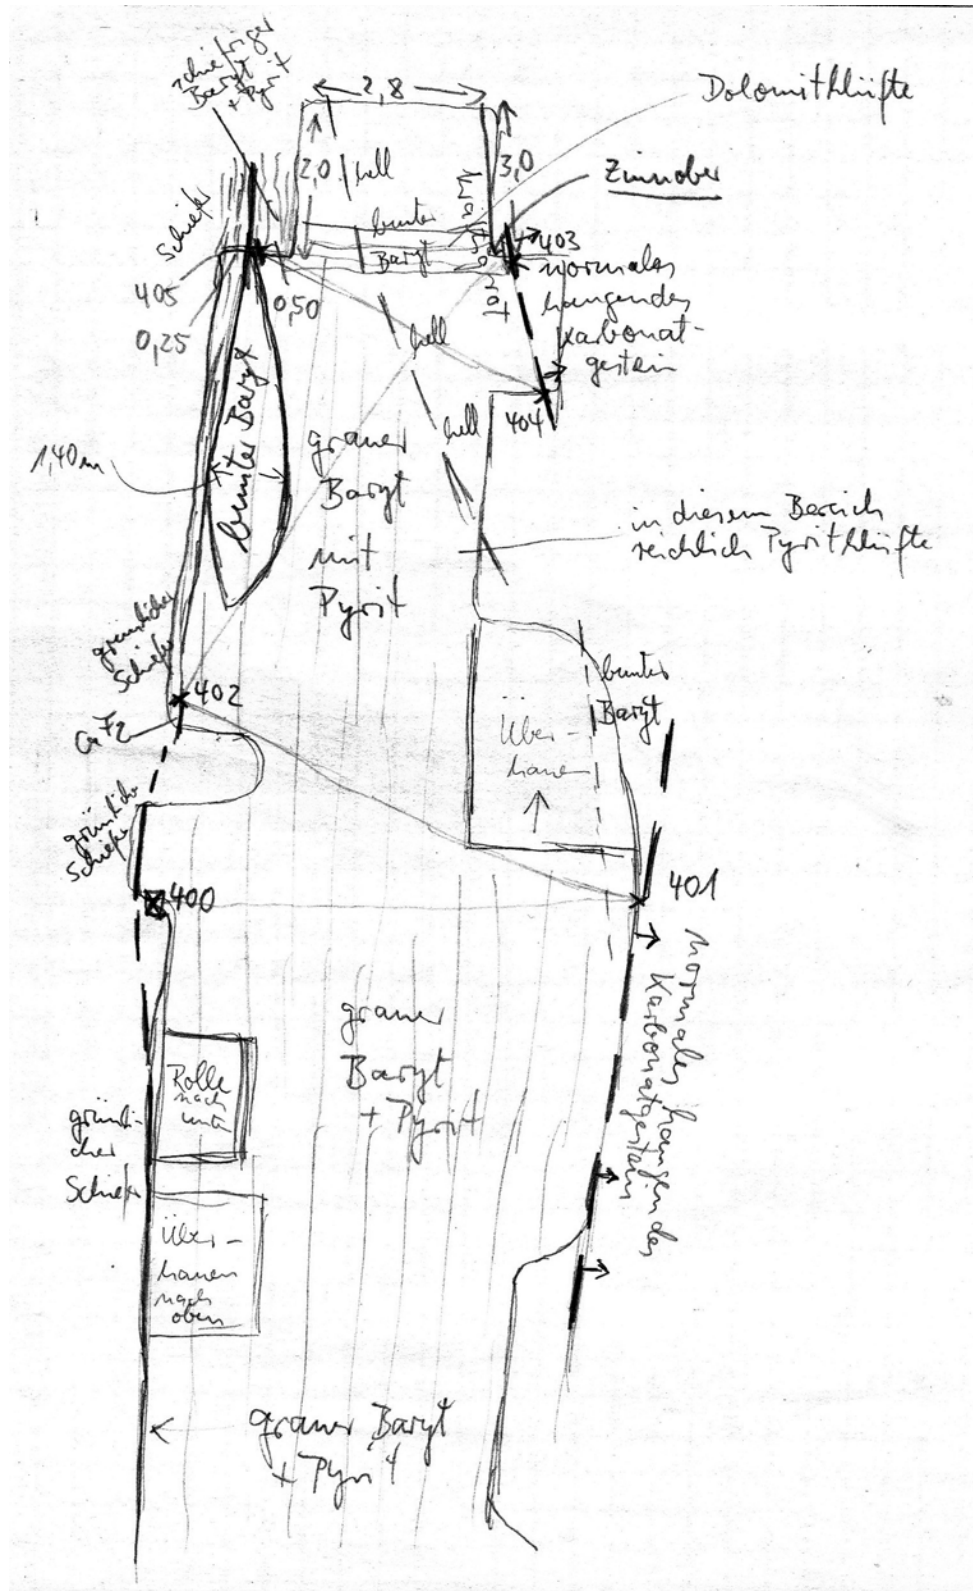 schiefriger
Baryt
+ Pyrit
2,8
Dolomitklüfte
2,0
hell
3,0
Zinnober
Schiefer
bunter
Baryt
rot
403
405
0,25
0,50
normales
hangendes
Karbonat-
gestein
hell
hell
404
1,40 m
bunter Baryt
grauer
Baryt
mit
Pyrit
in diesem Bereich
reichlich Pyritklüfte
grünlicher
Schiefer
402
bunter
Baryt
Über-
hauen
grünlicher
Schiefer
400
401
normales hangendes
Karbonatgestein
grauer
Baryt
+ Pyrit
Rolle
nach
unten
grünli-
cher
Schiefer
Über-
hauen
nach
oben
grauer Baryt
+ Pyrit